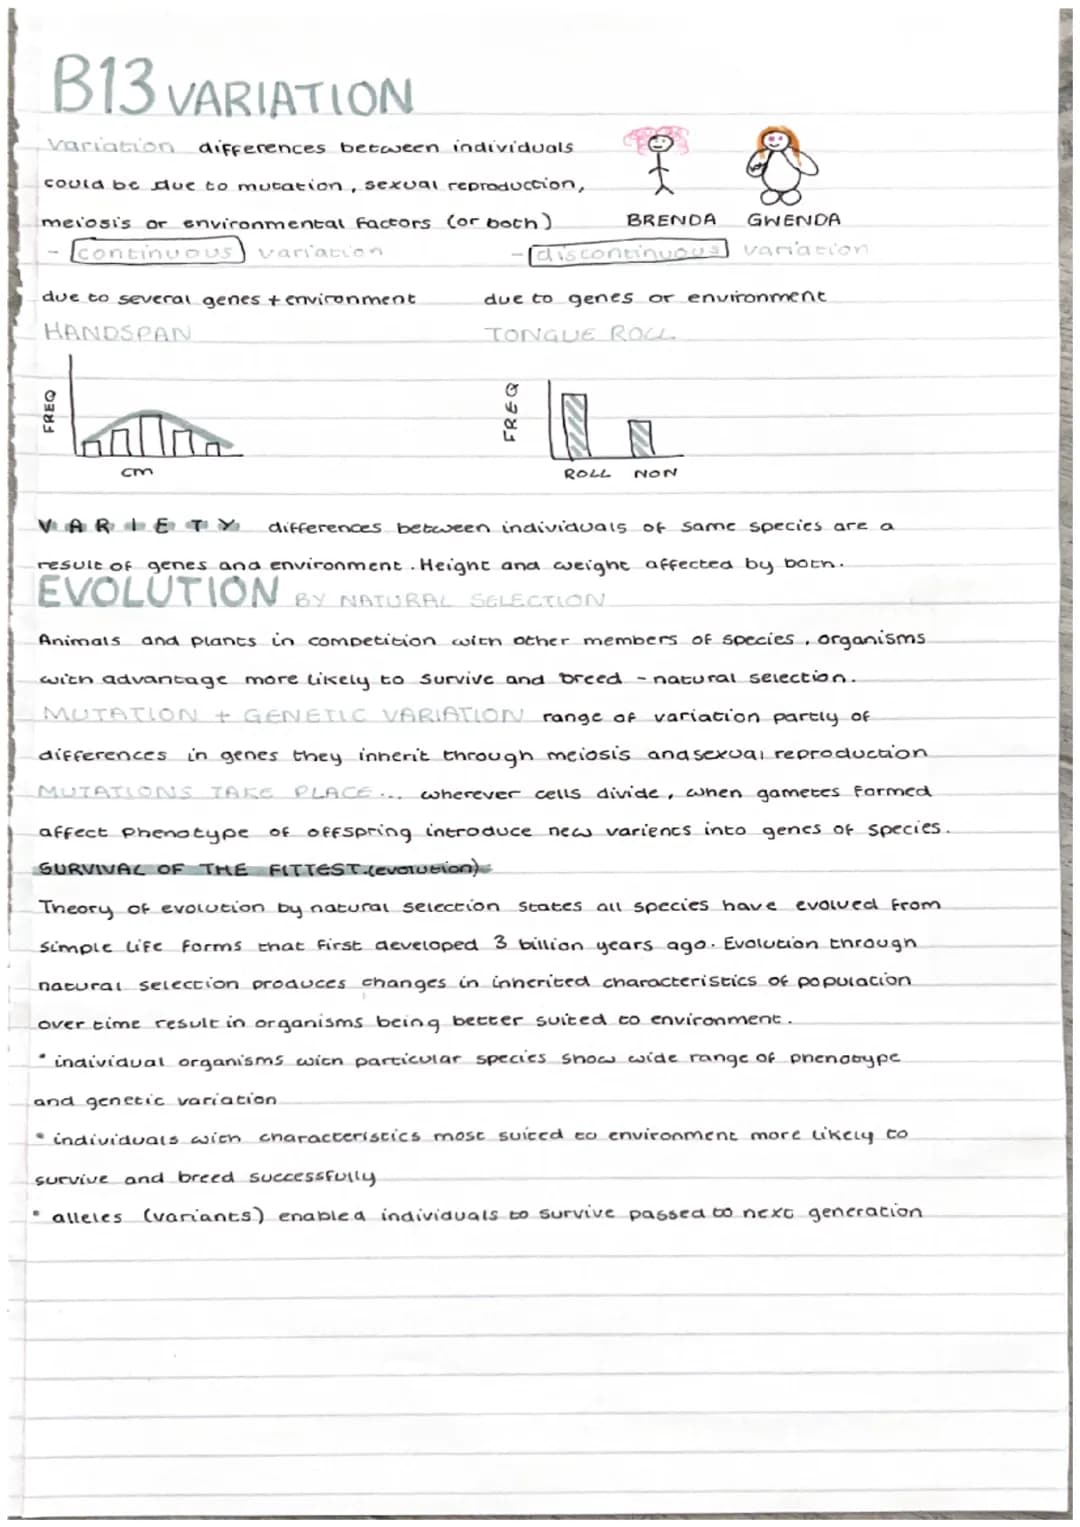 B13 VARIATION
variation differences between individuals
could be due to mutation, sexual reproduction,
meiosis or environmental factors (or both)
BRENDA GWENDA
- continuous variation
- discontinuous variation
due to several genes + environment
due to genes or environment
HANDSPAN
TONGUE ROLL
FREQ
cm
FREQ
ROLL NON
VARIETY differences between individuals of same species are a
result of genes and environment. Height and weight affected by both.
EVOLUTION BY NATURAL SELECTION
Animals and plants in competition with other members of species, organisms
with advantage more likely to survive and breed - natural selection.
MUTATION + GENETIC VARIATION range of variation partly of
differences in genes they inherit through meiosis and sexual reproduction
MUTATIONS TAKE PLACE... wherever cells divide, when gametes formed
affect phenotype of offspring introduce new varients into genes of species.
SURVIVAL OF THE FITTEST.(evolution)
Theory of evolution by natural selection states all species have evolved from
simple life forms that first developed 3 billion years ago. Evolution through
natural selection produces changes in inherited characteristics of population
over time result in organisms being better suited to environment.
• individual organisms with particular species show wide range of phenotype
and genetic variation
• individuals with characteristics most suited to environment more likely to
survive and breed successfully
• alleles (variants) enabled individuals to survive passed to next generation